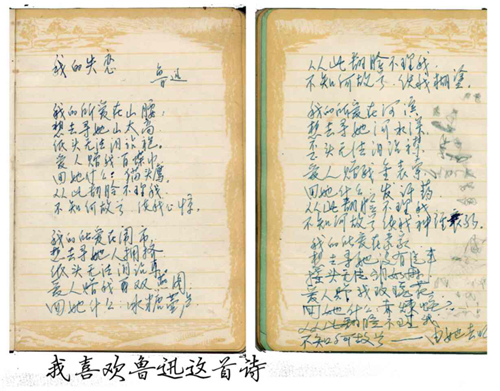 我的失恋
鲁迅
我的所爱在山腰
想去寻她山太高
低头无法泪沾袍
爱人赠我百蝶巾
回她什么:猫头鹰
从此翻脸不理我
不知何故兮使我心惊
我的所爱在闹市
想去寻她人拥挤
低头无法泪沾耳
爱人赠我双燕图
回她什么:冰糖葫芦
从此翻脸不理我
不知何故兮使我糊塗
我的所爱在河滨
想去寻她河水深
歪头无法泪沾襟
爱人赠我金表索
回她什么:发汗药
从此翻脸不理我
不知何故兮使我神经衰弱
我的所爱在豪家
想去寻她没有汽车
摇头无法泪如麻
爱人赠我玫瑰花
回她什么:赤练蛇
从此翻脸不理我
不知何故兮——由她去
我喜欢鲁迅这首诗